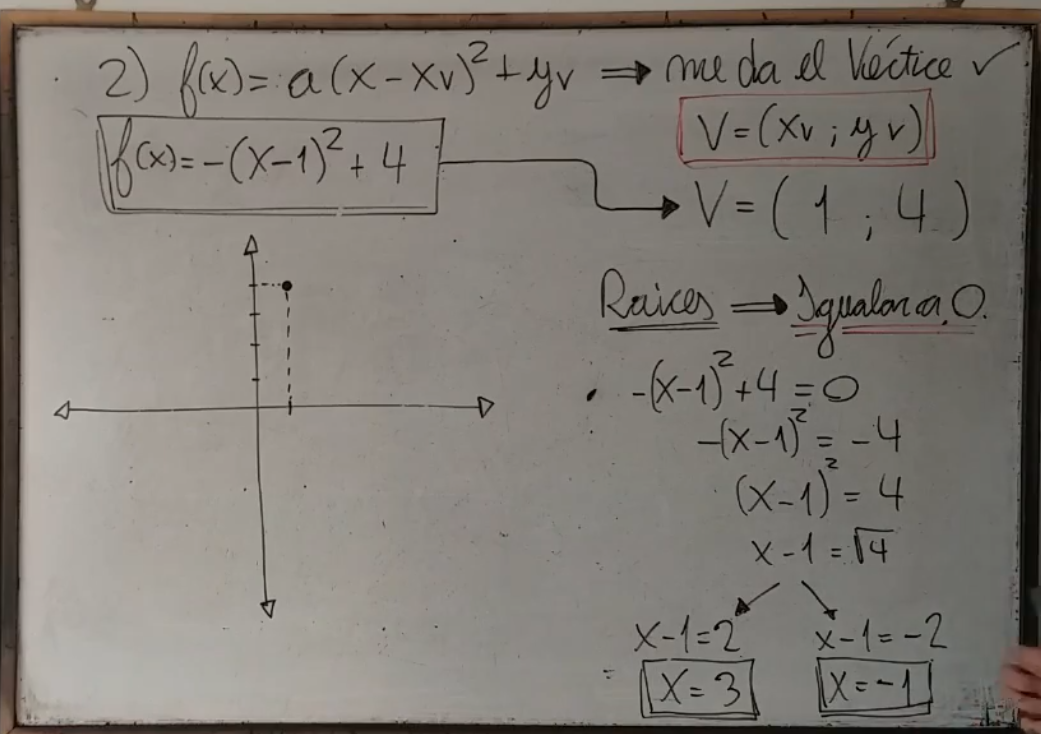 2) f(x) = a(x-xv)²+yv ⇒ me da el Vértice ✓
V=(xv ; yv)
f(x)=-(x-1)²+4
V=( 1 ; 4 )
Raices ⇒ Igualar a 0.
• -(x-1)²+4=0
-(x-1)²=-4
(x-1)²=4
x-1=√4
x-1=2 x-1=-2
x=3 x=-1